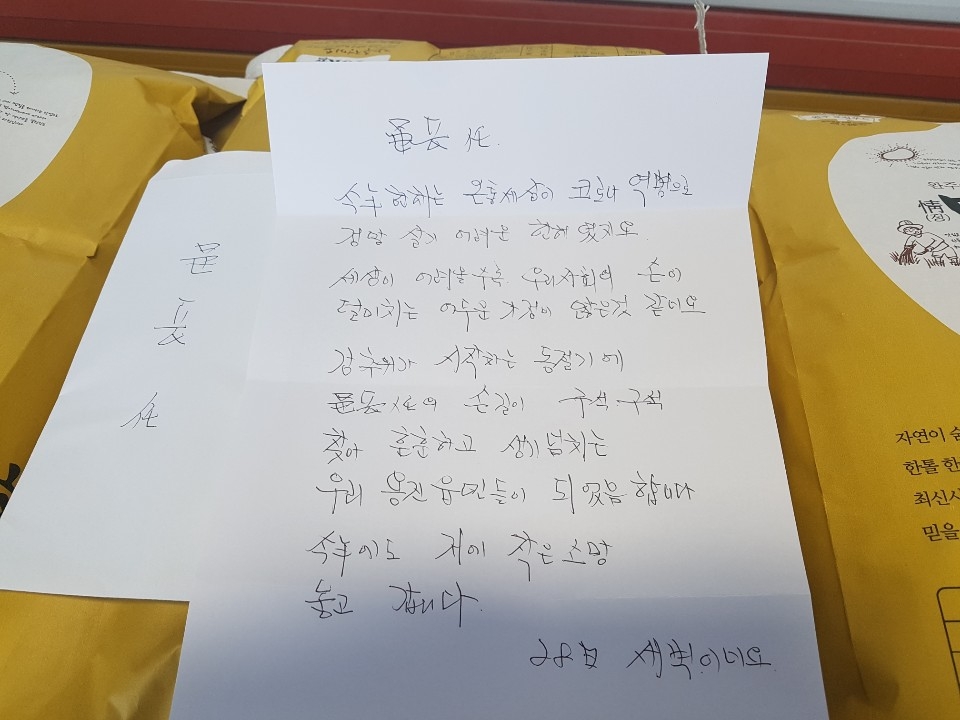 邑長 任.
今年 한해는 온통세상이 코로나 역병으로
정말 살기 어려운 한해 였지요.
세상이 어려울수록 우리사회의 손이
덜미치는 어두운 가정이 많은것 같네요
강추위가 시작하는 동절기에
邑長任의 손길이 구석.구석
찾아 훈훈하고 생기넘치는
우리 용진읍민들이 되었음 합니다
今年에도 저에 작은소망
놓고 갑니다.
28日 새벽.이네요.
邑
長
任
완주
情
(정)
자연이
한톨
믿을